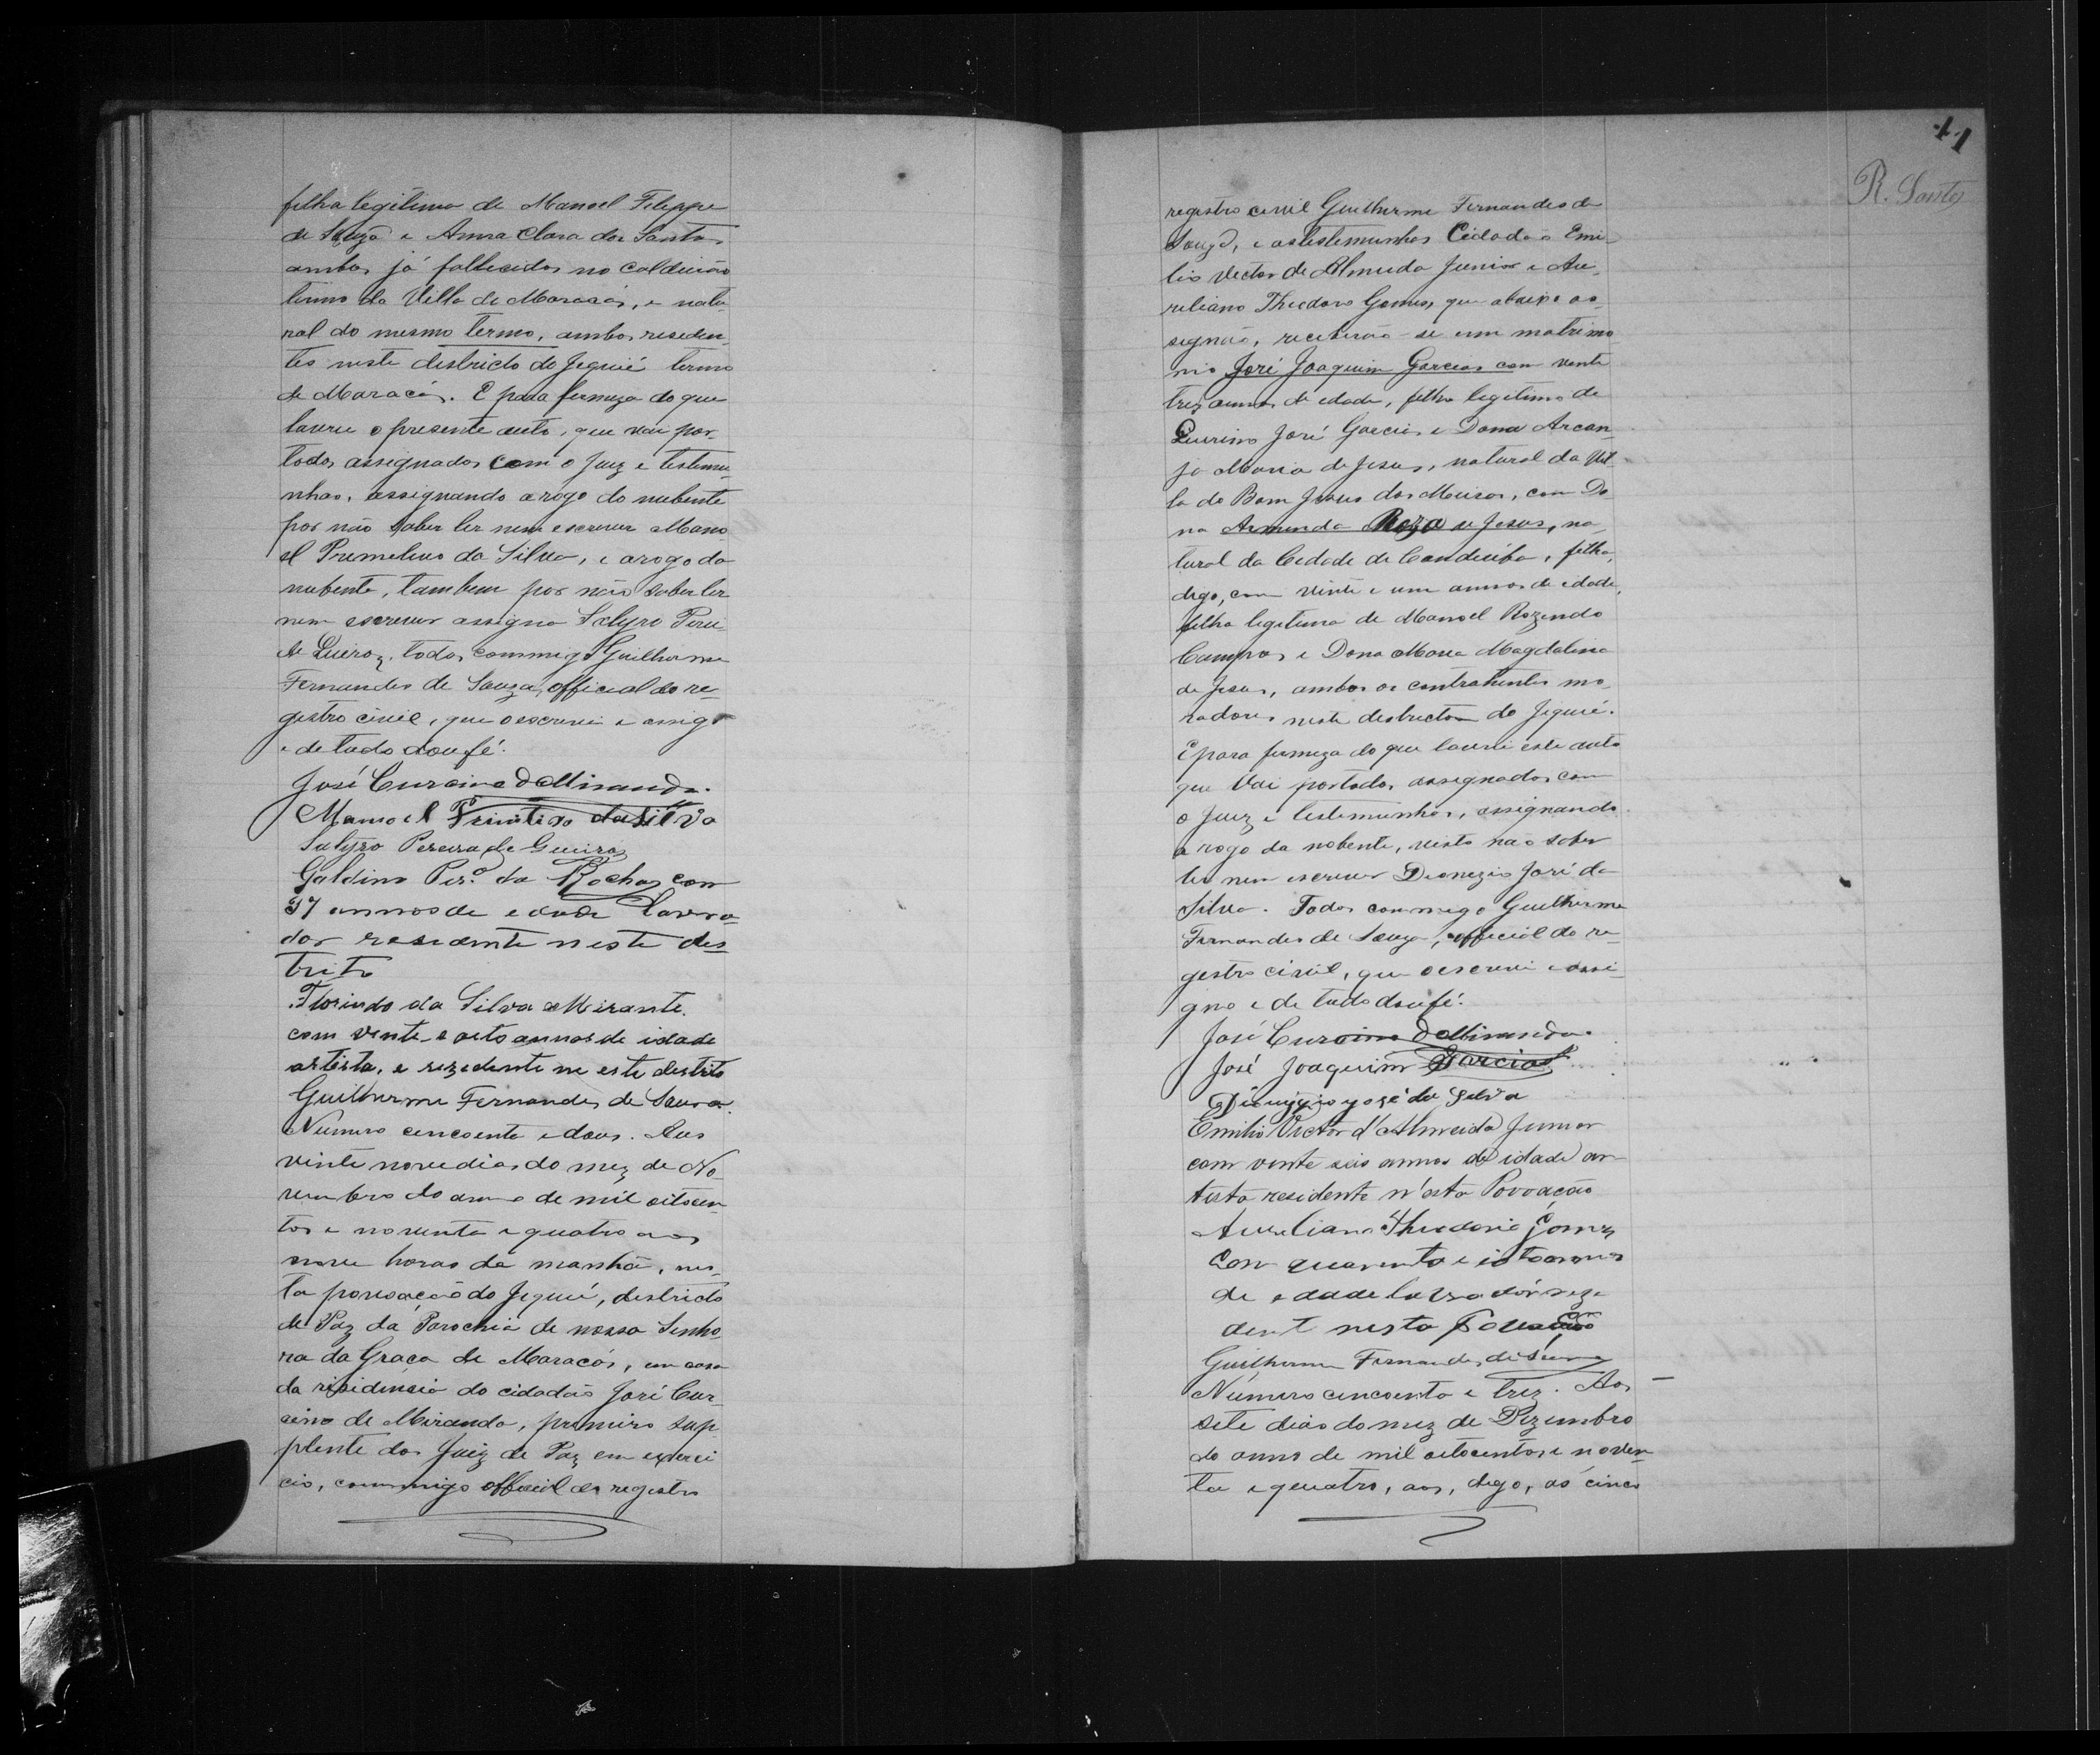 filha legitima de Manoel Felippe
de Souza e Anna Clara dos Santos
ambos já fallecidos no Caldeirão
termo da Villa de Maracás, e natu-
ral do mesmo termo, ambos residen-
tes neste districto do Jequié termo
de Maracás. E para firmeza do que
lavrei o presente auto, que vai por
todos assignados com o Juiz e testemu-
nhas, assignando a rogo do nubente
por não saber ler nem escrever Mano
el Premetivo da Silva, e a rogo da
nubente, tambem por não saber ler
nem escrever assigna Satyro Perei-
de Queiroz, todos commigo Guilherme
Fernandes de Souza, official do re-
gistro civil, que o escrevi e assigo
e de tudo dou fé.
José Curcino de Miranda.
Manoel Primitivo da Silva
Satyro Pereira de Queiroz
Galdino Per.ª da Rocha, com
37 annos de edade lavra-
dor residente neste des
trito
Florindo da Silva Mirante.
com vente e oito annos de idade
artista, e rezedente ne este destrito
Guilherme Fernandes de Souza.
Numero cincoenta e dous. Aos
vinte nove dias do mez de No-
vembro do anno de mil oitocen-
tos e noventa e quatro aos
nove horas da manhã, nes-
ta povoação do Jequié, districto
de Paz da Parochia de nossa Senho-
ra da Graça de Maracás, em casa
da residencia do cidadão José Cur-
cino de Miranda, premeiro sup-
plente dos Juiz de Paz em exerci
cio, commigo official do registro
11
R. Santos
registro civil Guilherme Fernandes de
Souza, e as testemunhas Cidadão Emi-
lio Victor de Almeida Junior e Au-
reliano Theodoro Gomes, que abaixo as-
signão, receberão-se em matrimo
nio José Joaquim Garcias com vente
trez annos de edade, filho legitimo de
Quirino José Garcia e Dona Arcan-
ja Maria de Jesus, natural da Vil-
la do Bom Jesus dos Meiros, com Do
na Arminda Roza de Jesus, na-
tural da Cidade de Condeúba, filha,
digo, com vinte e um annos de edade,
filha legitima de Manoel Rozendo
Campos e Dona Maria Magdalena
de Jesus, ambos os contrahentes mo-
radores neste destricto do Jequié.
E para firmeza do que lavrei este auto
que vai por todos assignados com
o Juiz e testemunhas, assignando
a rogo da nobente, visto não saber
ler nem escrever Dionezio José da
Silva. Todos commigo Guilherme
Fernandes de Souza, official do re-
gistro civil, que o escrevi e assi-
gno e de tudo dou fé.
José Curcino de Miranda.
José Joaquim Garcia
Dionizio José da Silva
Emilio Victor d'Almeida Junior
com vente seis annos de idade ar
tista residente n'esta Povoação
Aureliano Theodorio Gomes
Com quarenta e oito annos
de edade lavrador reze
dent nesta Povoação
Guilherme Fernandes de Souza
Numero cincoenta e trez. Aos
sete dias do mez de Dezembro
do anno de mil oitocentos e noven-
ta e quatro, aos, digo, ás cinco